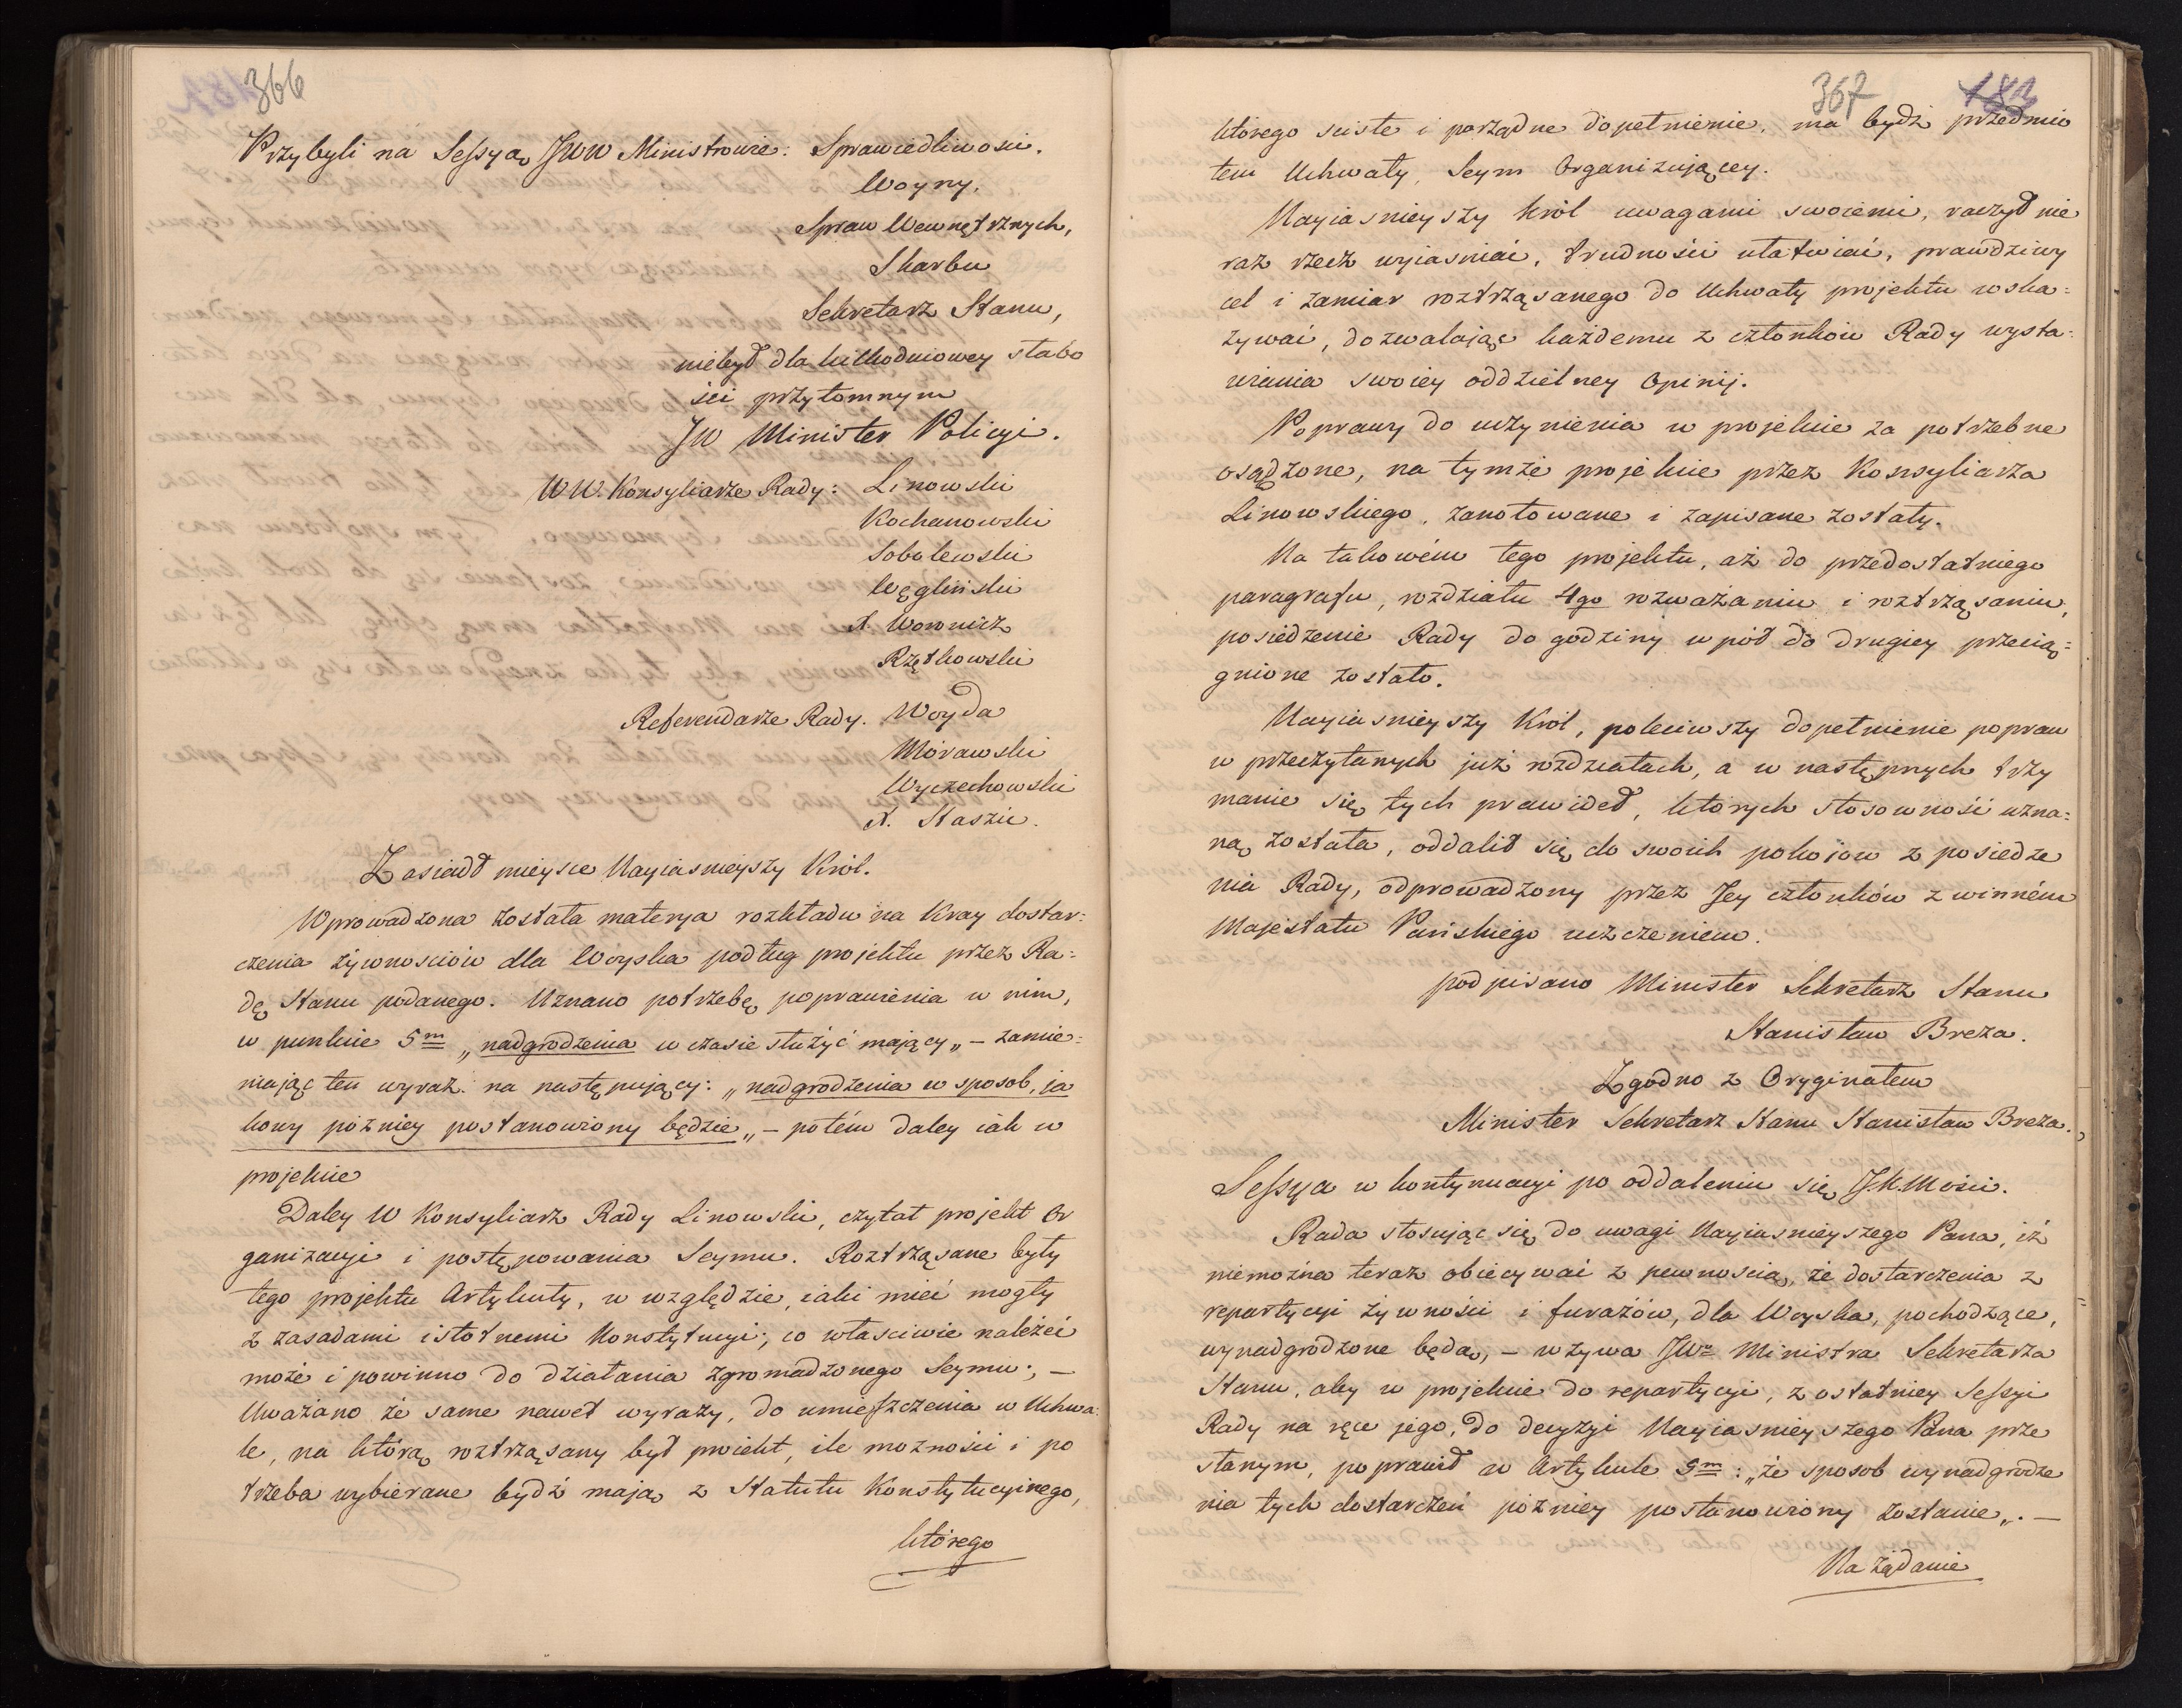 366
Przybyli na Sessyą JWW Ministrowie: Sprawiedliwości.
Woyny.
Spraw Wewnętrznych,
Skarbu
Sekretarz Stanu,
niebył dla kilkodniowey słabo
ści przytomnym
JW Minister Policyi.
WW. Konsyliarze Rady: Linowski
Kochanowski
Sobolewski
Węgliński
X. Woronicz
Rzętkowski
Referendarze Rady. Woyda
Morawski
Wyczechowski
X. Staszic.
Zasiadł mieysce Nayiaśnieyszy Król.
Wprowadzona została materya rozkładu na Kray dostar:
czenia żywnościów dla Woyska podług projektu przez Ra:
dę Stanu podanego. Uznano potrzebę poprawienia w nim,
w punkcie 5m „nadgrodzenia w czasie służyć mający„ – zamie:
niając ten wyraz. na następujący: „nadgrodzenia w sposob, ja
kowy pózniey postanowiony będzie„ – potém daley iak w
projekcie
Daley W Konsyliarz Rady Linowski, czytał projekt Or
ganizacyi i postępowania Seymu. Roztrząsane były
tego projektu Artykuły, w względzie, iaki mieć mogły
z zasadami istotnemi Konstytucyi; co właściwie należeć
może i powinno do działania zgromadzonego Seymu; –
Uważano że same nawet wyrazy, do umieszczenia w Uchwa:
le, na którą roztrząsany był proiekt, ile możności i po
trzeba wybierane bydź mają z Statutu Konstytucyinego,
którego
367 183
którego scisłe i porządne dopełnienie, ma bydź przedmio
tem Uchwały, Seym Organizującey.
Nayiaśnieyszy Król uwagami swoiemi, raczył nie
raz rzecz wyiaśniać, trudności ułatwiać, prawdziwy
cel i zamiar roztrząsanego do Uchwały projektu wska:
zywać, dozwalając każdemu z członków Rady wysta:
wiania swoiey oddzielney Opinij.
Poprawy do uczynienia w projekcie za potrzebne
osądzone, na tymże projekcie przez Konsyliarza
Linowskiego, zanotowane i zapisane zostały.
Na takowém tego projektu, aż do przedostatniego
paragrafu, rozdziału 4go rozważaniu i roztrząsaniu,
posiedzenie Rady do godziny w pół do drugiey przecią:
gnione zostało.
Nayiaśnieyszy Król, poleciwszy dopełnienie popraw
w przeczytanych już rozdziałach, a w następnych trzy
manie się tych prawideł, których stosowność uzna:
ną została, oddalił się do swoich pokojow z posiedze
nia Rady, odprowadzony przez Jey członków z winném
Majestatu Pańskiego uczczeniem.
podpisano Minister Sekretarz Stanu
Stanisław Breza.
Zgodno z Oryginałem
Minister Sekretarz Stanu Stanisław Breza.
Sessya w kontynuacyi po oddaleniu się J.K.Mości.
Rada stosując się do uwagi Nayiaśnieyszego Pana, iż
niemożna teraz obiecywać z pewnością, że dostarczenia z
repartycyi żywności i furażów, dla Woyska, pochodzące,
wynadgrodzone będą, – wzywa JWo Ministra Sekretarza
Stanu, aby w projekcie do repartycyi, z ostatniey Sessyi
Rady na ręce jego, do decyzyi Nayiaśnieyszego Pana prze
słanym, poprawił w Artykule 5m: „że sposob wynadgrodze
nia tych dostarczeń pózniey postanowiony zostanie„. –
Na żądanie